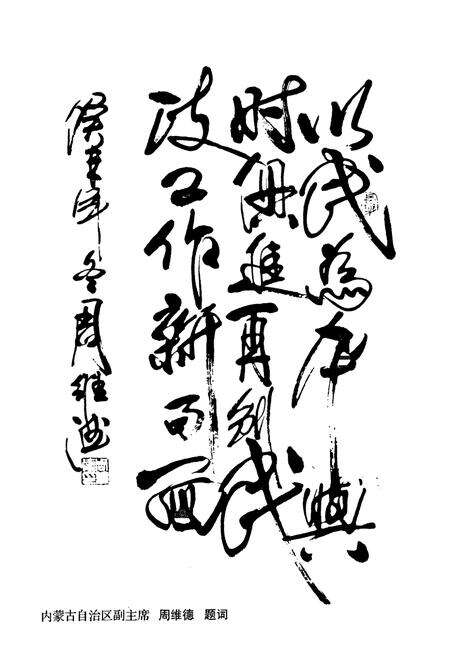 以民为本 与
时俱进再创民
政工作新局面
癸未年冬周维德
内蒙古自治区副主席 周维德 题词